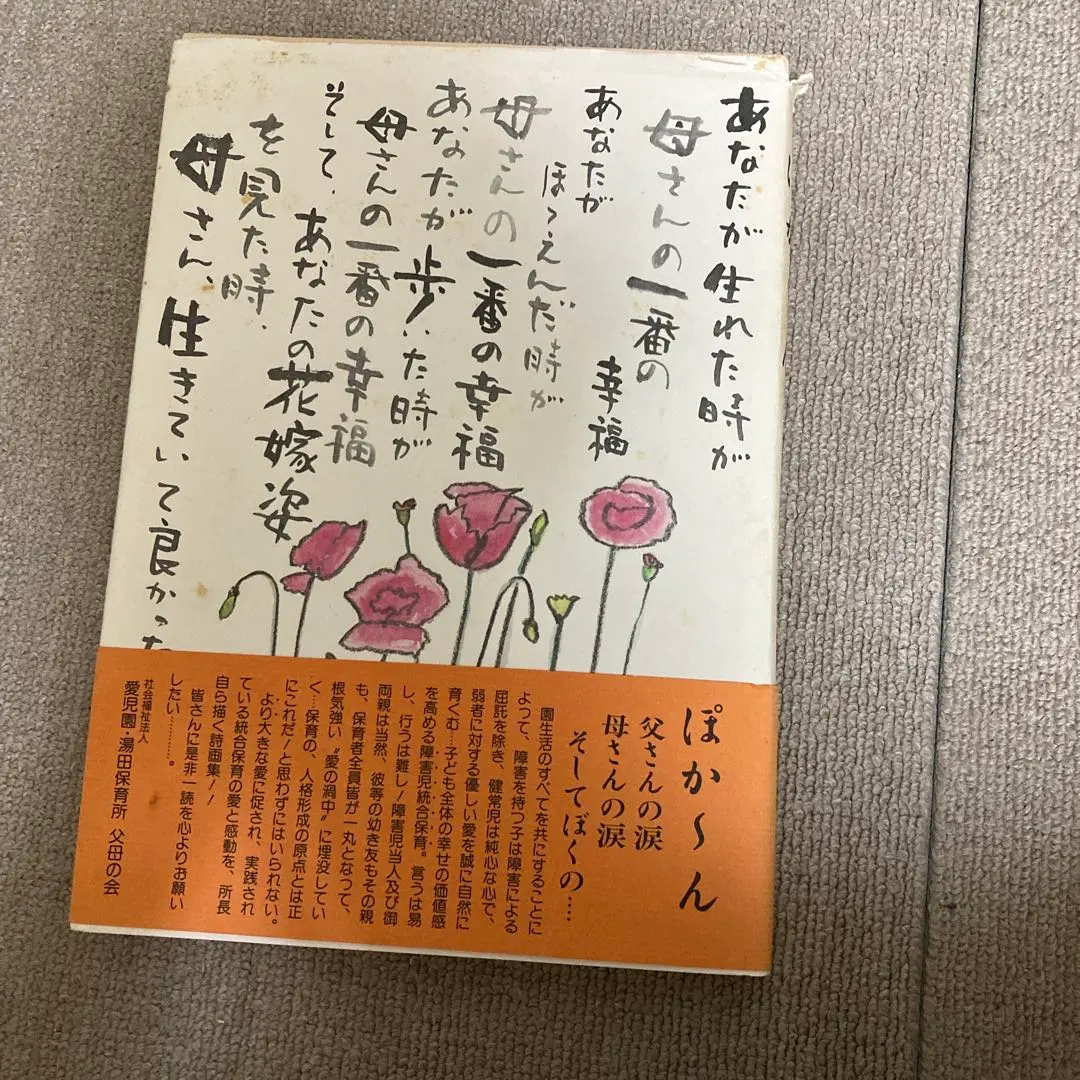 あなたが生れた時が
母さんの一番の
幸福
あなたが
ほゝえんだ時が
母さんの一番の幸福
あなたが歩いた時が
母さんの一番の幸福
そして、
あなたの花嫁姿
を見た時、
母さん、生きていて良かった
ぽか～ん
父さんの涙
母さんの涙
そしてぼくの……
園生活のすべてを共にすることに
よって、障害を持つ子は障害による
屈託を除き、健常児は純心な心で、
弱者に対する優しい愛を誠に自然に
育くむ…子ども全体の幸せの価値感
を高める障害児統合保育。言うは易
し、行うは難し！障害児当人及び御
両親は当然、彼等の幼き友もその親
も、保育者全員皆が一丸となって、
根気強い〝愛の渦中〟に埋没してい
く…保育の、人格形成の原点とは正
にこれだ！と思わずにはいられない。
より大きな愛に促され、実践され
ている統合保育の愛と感動を、所長
自ら描く詩画集！！
皆さんに是非一読を心よりお願い
したい…………。
社会福祉法人
愛児園・湯田保育所 父母の会